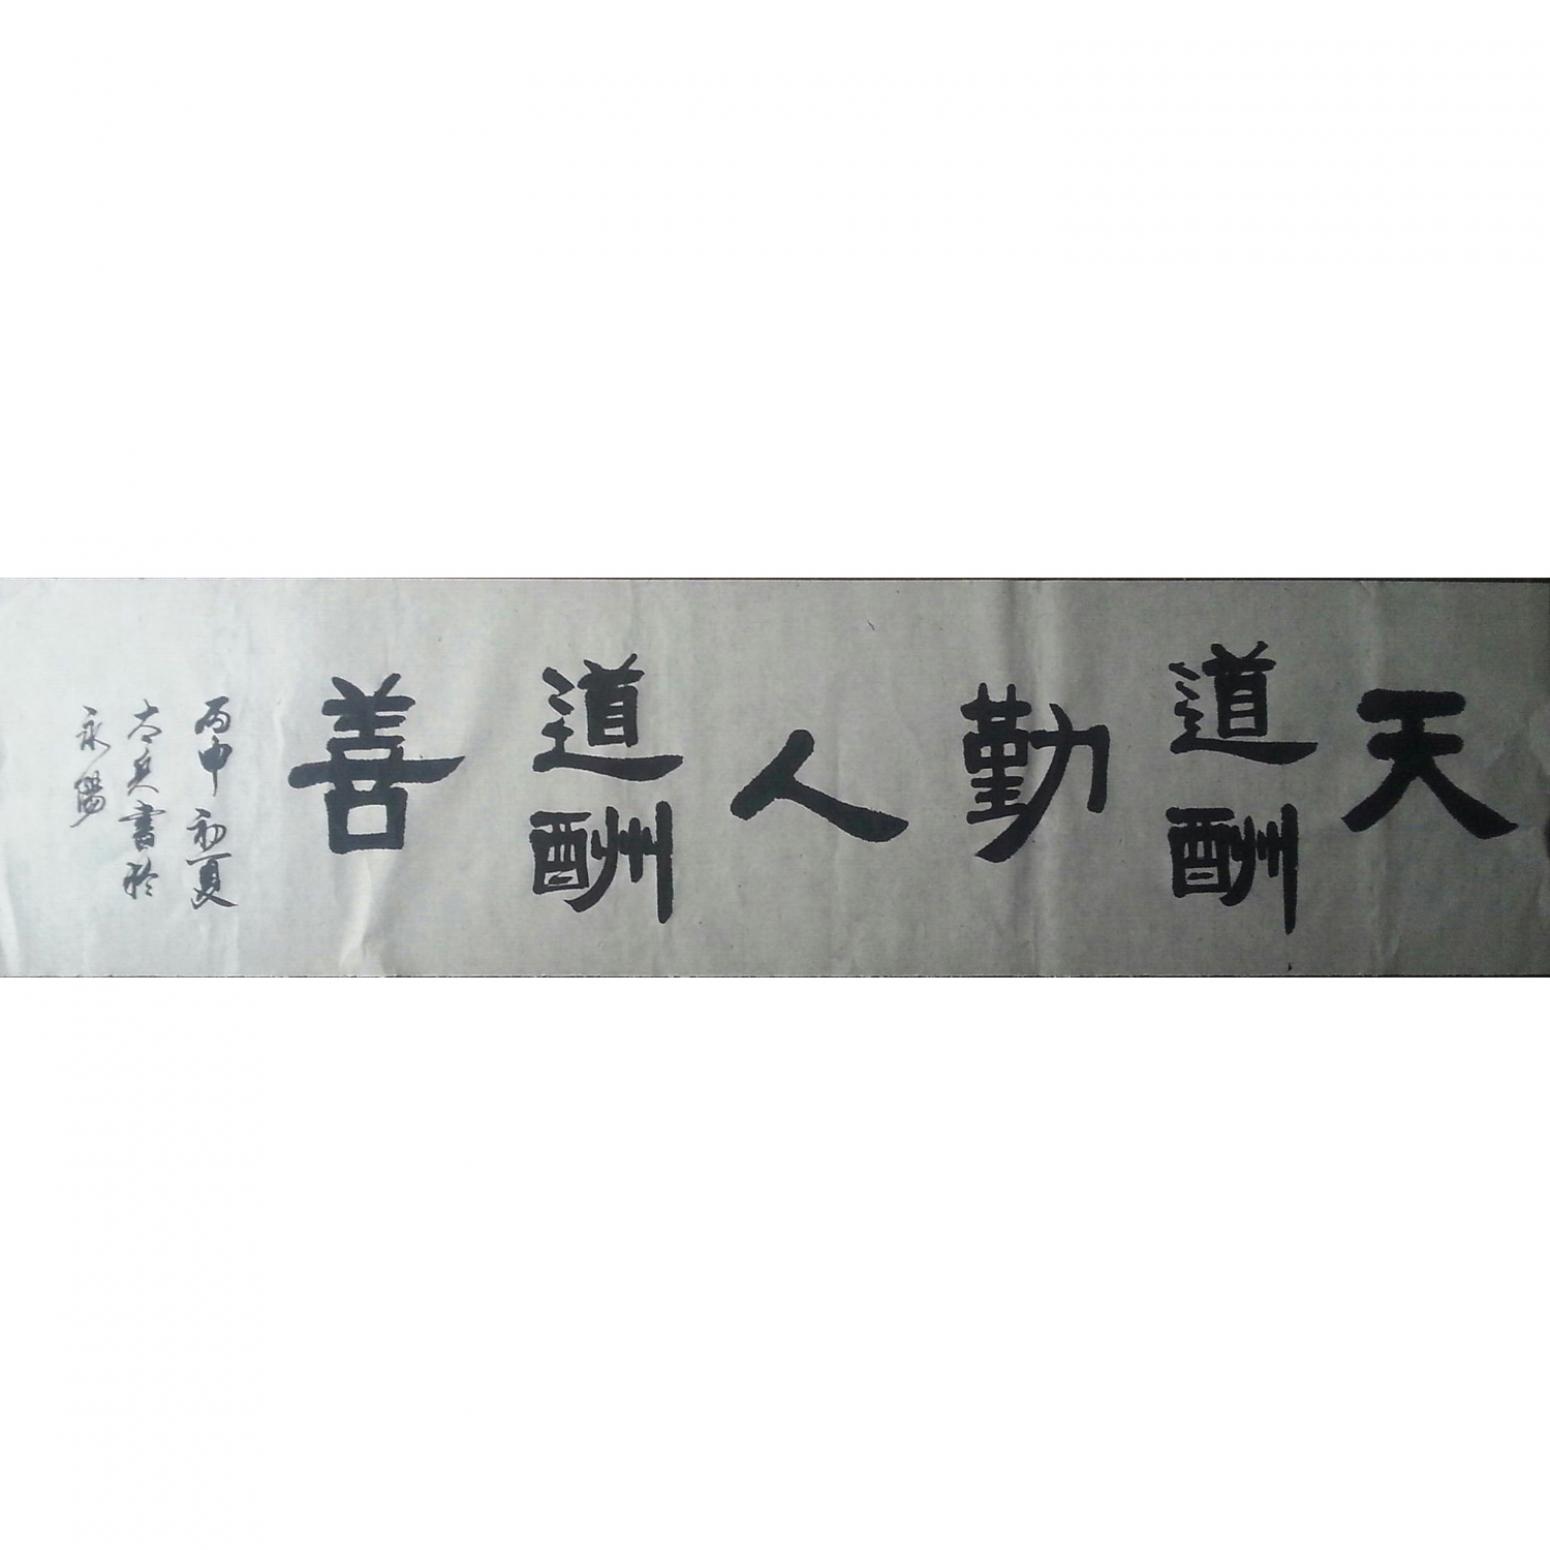 天
道酬
勤
人
道酬
善
丙申初夏
太兵書於
永陽